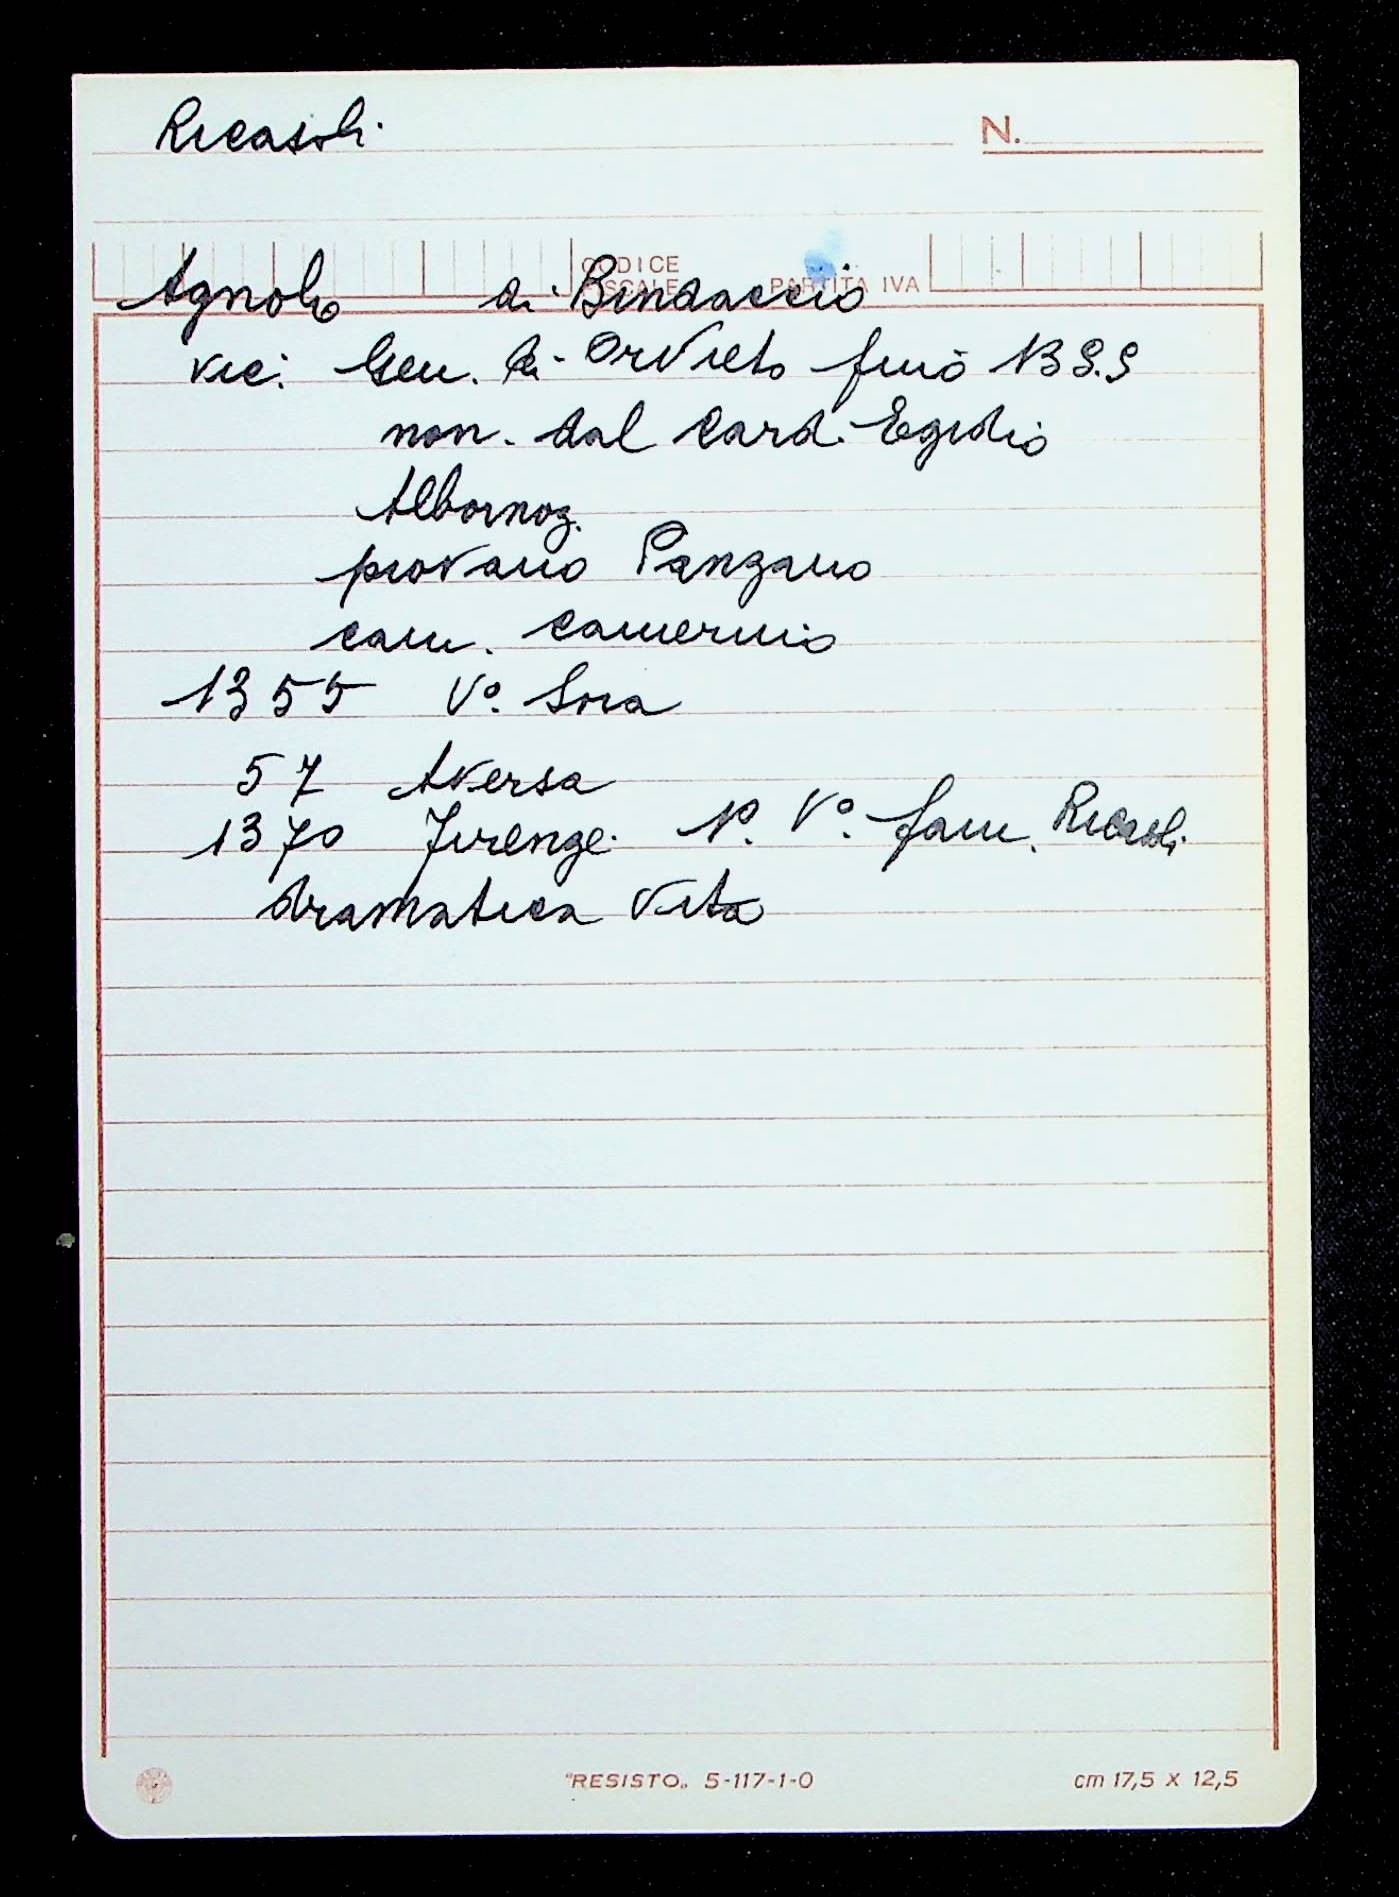 Ricasoli
N.
CODICE FISCALE PARTITA IVA
Agnolo di Bindaccio
vic. Gen. di Orvieto fino 13
nom. dal Card. Egidio
Albornoz.
piovano Panzano
can. Camerino
1355 Vº. Sora
57 Aversa
1370 Firenze. Vº. fam. Ricasoli
drammatica vita
"RESISTO„ 5-117-1-0
cm 17,5 x 12,5